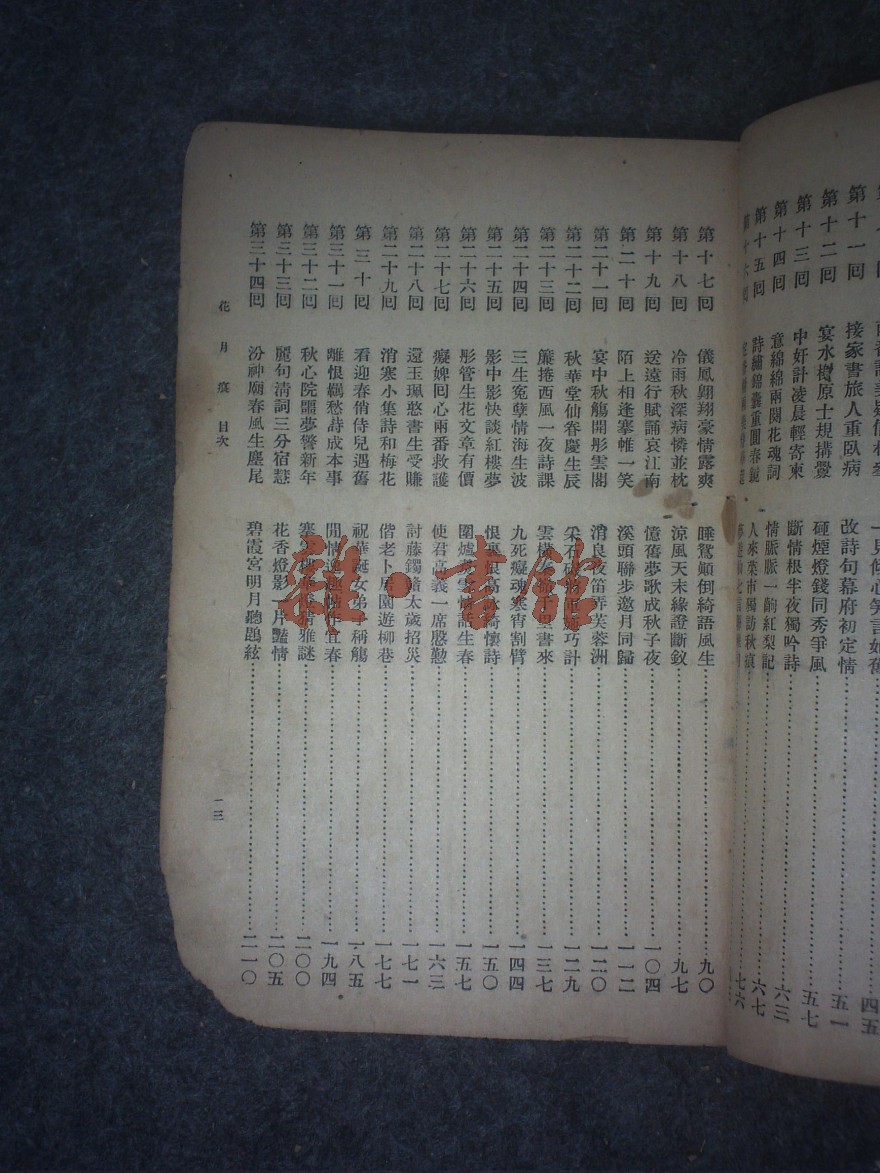 第十一回 接家書旅人重臥病 改詩句幕府初定情 五一
第十二回 宴水榭原士規搆釁 砸煙燈錢同秀爭風 五七
第十三回 中奸計凌晨輕寄柬 斷情根半夜獨吟詩 六三
第十四回 意綿綿兩闋花魂詞 情脈脈一齣紅梨記 六七
第十五回 詩繡錦囊重圓春鏡 人來菜市獨訪秋痕
七六
第十七回 儀鳳翱翔豪情露爽 睡鴛顛倒綺語風生 九〇
第十八回 冷雨秋深病憐並枕 涼風天末緣證斷釵 九七
第十九回 送遠行賦誦哀江南 憶舊夢歌成秋子夜 一〇四
第二十回 陌上相逢搴帷一笑 溪頭聯步邀月同歸 一一二
第二十一回 宴中秋觴開彤雲閣 消良夜笛弄芙蓉洲 一二〇
第二十二回 秋華堂仙眷慶生辰 采石磯 巧計 一二九
第二十三回 簾捲西風一夜詩課 雲橫 書來 一三七
第二十四回 三生冤孽情海生波 九死癡魂寒宵割臂 一四四
第二十五回 影中影快談紅樓夢 恨裏恨高詠綺懷詩 一五〇
第二十六回 彤管生花文章有價 圍爐 情話生春 一五七
第二十七回 癡婢回心兩番救護 使君高義一席慇懃 一六三
第二十八回 還玉珮憨書生受賺 討藤鐲 太歲招災 一七一
第二十九回 消寒小集詩和梅花 偕老卜居園遊柳巷 一七七
第三十回 看迎春俏侍兒遇舊 祝華誕女弟 稱觴 一八五
第三十一回 離恨羈愁詩成本事 閒情 宜春 一九四
第三十二回 秋心院噩夢警新年 猜雅謎 二〇〇
第三十三回 麗句清詞三分宿慧 花香燈影 片豔情 二〇五
第三十四回 汾神廟春風生麈尾 碧霞宮明月聽鵾絃 二一〇
花月痕 目次
一三
雜·書館